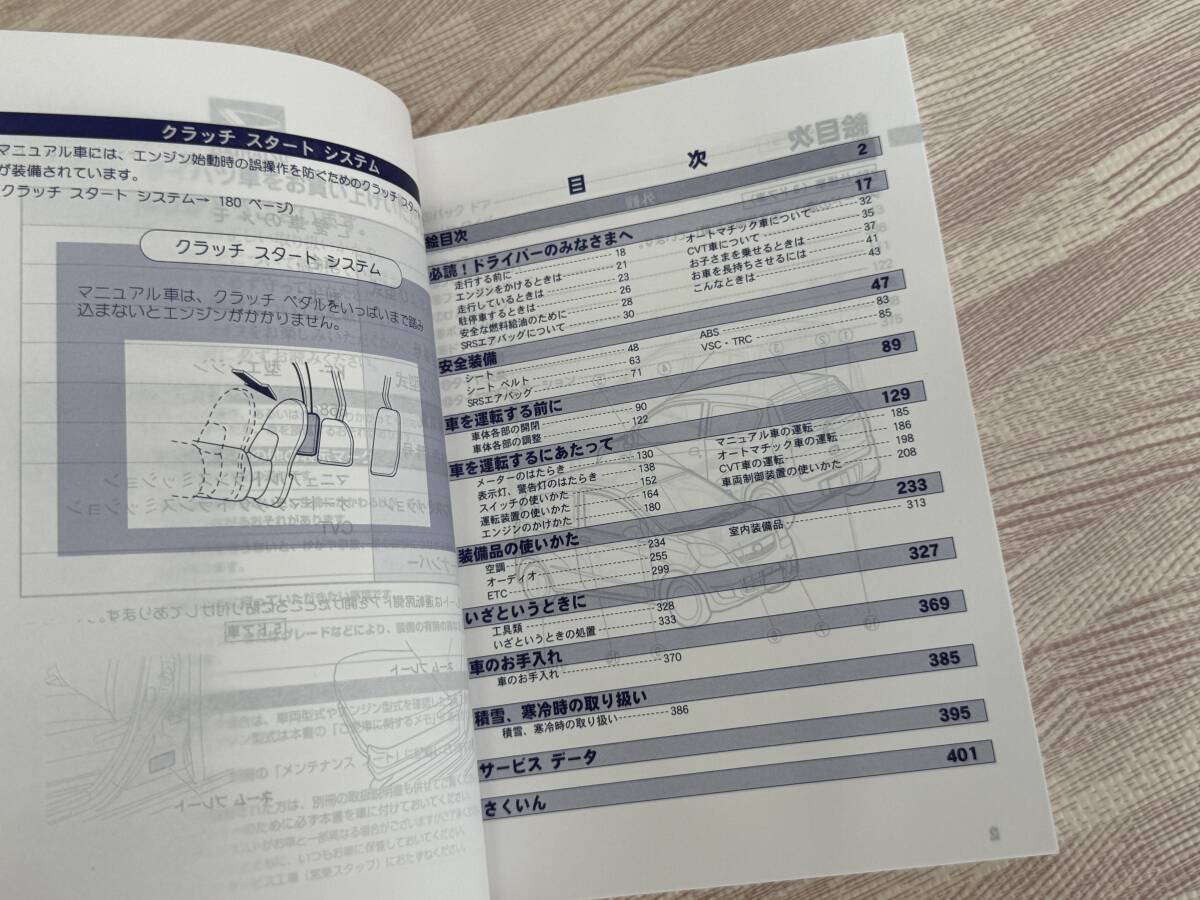 クラッチ スタート システム
マニュアル車には、エンジン始動時の誤操作を防ぐためのクラッチ スター
が装備されています。
クラッチ スタート システム→ 180 ページ)
クラッチ スタート システム
マニュアル車は、クラッチ ペダルをいっぱいまで踏み
込まないとエンジンがかかりません。
目 次
絵目次 2
必読!ドライバーのみなさまへ 17
走行する前に 18
エンジンをかけるときは 21
走行しているときは 23
駐停車するときは 26
安全な燃料給油のために 28
SRSエアバッグについて 30
オートマチック車について 32
CVT車について 35
お子さまを乗せるときは 37
お車を長持ちさせるには 41
こんなときは 43
安全装備 47
シート 48
シート ベルト 63
SRSエアバッグ 71
ABS 83
VSC・TRC 85
車を運転する前に 89
車体各部の開閉 90
車体各部の調整 122
車を運転するにあたって 129
メーターのはたらき 130
表示灯、警告灯のはたらき 138
スイッチの使いかた 152
運転装置の使いかた 164
エンジンのかけかた 180
マニュアル車の運転 185
オートマチック車の運転 186
CVT車の運転 198
車両制御装置の使いかた 208
装備品の使いかた 233
空調 234
オーディオ 255
ETC 299
室内装備品 313
いざというときに 327
工具類 328
いざというときの処置 333
車のお手入れ 369
車のお手入れ 370
積雪、寒冷時の取り扱い 385
積雪、寒冷時の取り扱い 386
サービス データ 395
さくいん 401